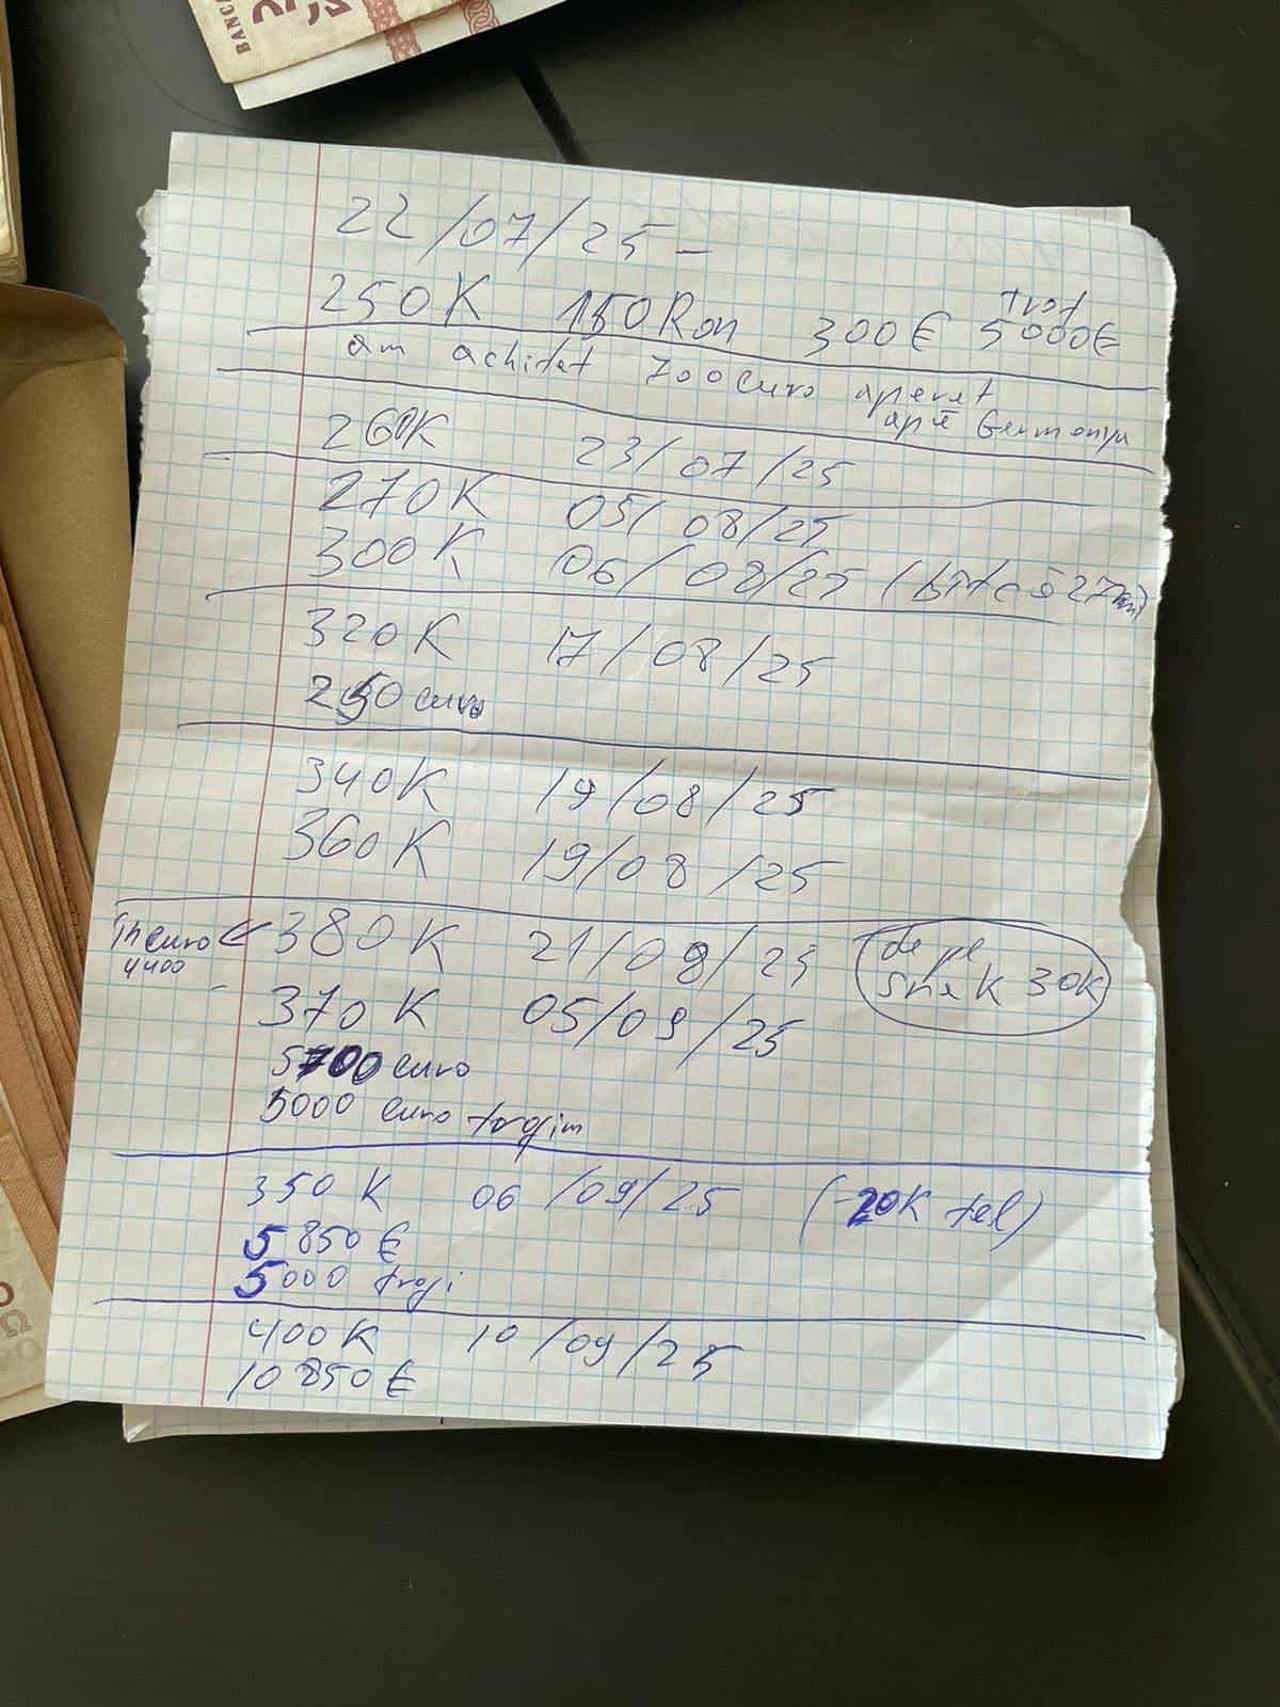 BANCA
22/07/25 -
250K 150 Ron 300€ 5000€
am achitat 700 euro aparat
apă Germania
260K 23/07/25
270K 05/08/25
300K 06/08/25
320K 17/08/25
250 euro
340K 19/08/25
360K 19/08/25
In euro 380K 21/08/25 de pe
4400 30K
370K 05/09/25
5700 euro
5000 euro
350K 06/09/25 (-20K tel)
5850€
5000
400K 10/09/25
10850€